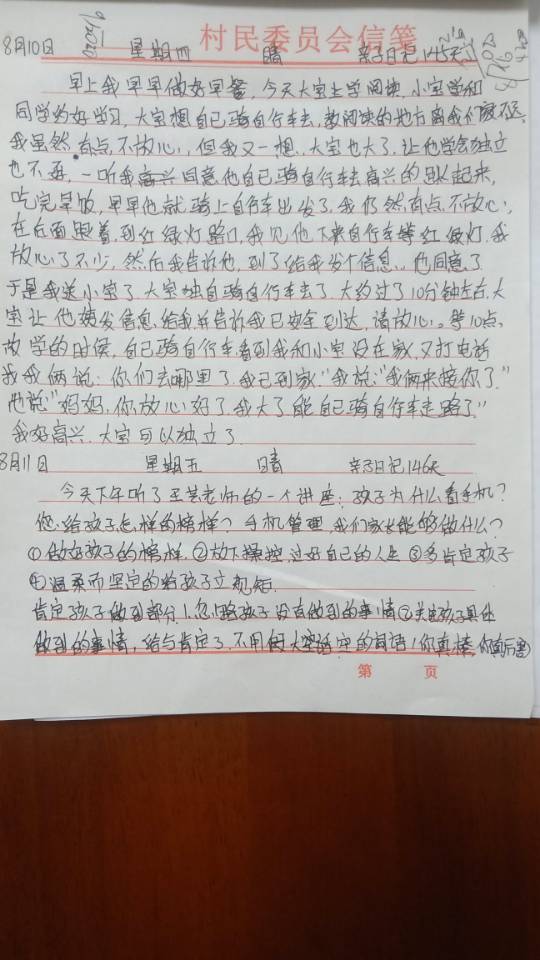 村民委员会信笺
8月10日 星期四 晴 亲子日记145天
早上我早早做好早餐,今天大宝上学阅读,小宝学和
同学约好学习,大宝想自己骑自行车去,教阅读的地方离我们家不远,
我虽然有点不放心,但我又一想,大宝也大了,让他学会独立
也不再,一听我高兴同意他自己骑自行车去高兴的跳起来,
吃完早饭,早早他就骑上自行车出发了,我仍然有点不放心,
在后面跟着,到红绿灯路口,我见他下来自行车等红绿灯,我
放心了不少,然后我告诉他,到了给我发个信息,他同意了
于是我送小宝了,大宝独自骑自行车去了,大约过了10分钟左右,大
宝让他姨发信息给我并告诉我已安全到达,请放心。等10点,
放学的时候,自己骑自行车,看到我和小宝没在家,又打电话
我我俩说:你们去哪里了,我已到家"我说:"我俩来接你了"
他说"妈妈,你放心好了,我大了能自己骑自行车走路了"
我好高兴,大宝可以独立了
8月11日 星期五 晴 亲子日记146天
今天下午听了王老师的一个讲座:孩子为什么看手机?
您给孩子怎样的榜样?手机管理,我们家长能够做什么?
①做好孩子的榜样 ②放下操控,过好自己的人生 ③多肯定孩子
④温柔而坚定的给孩子立规矩.
肯定孩子做到部分 1.忽略孩子没有做到的事情 ②关注孩子具体
做到的事情,给与肯定3.不用大空话定的词语(你真棒,你真厉害)
第 页